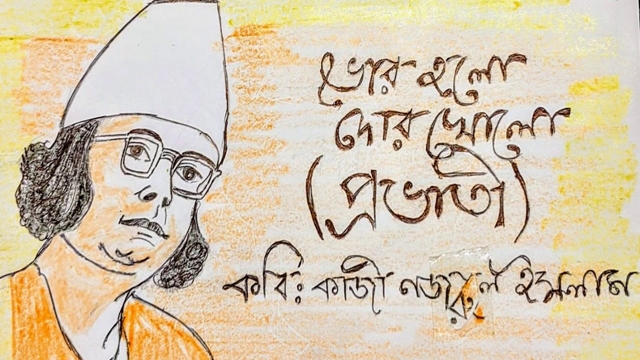 ভোর হলো
দোর খোলো
(প্রভাতী)
কবি: কাজী নজরুল ইসলাম